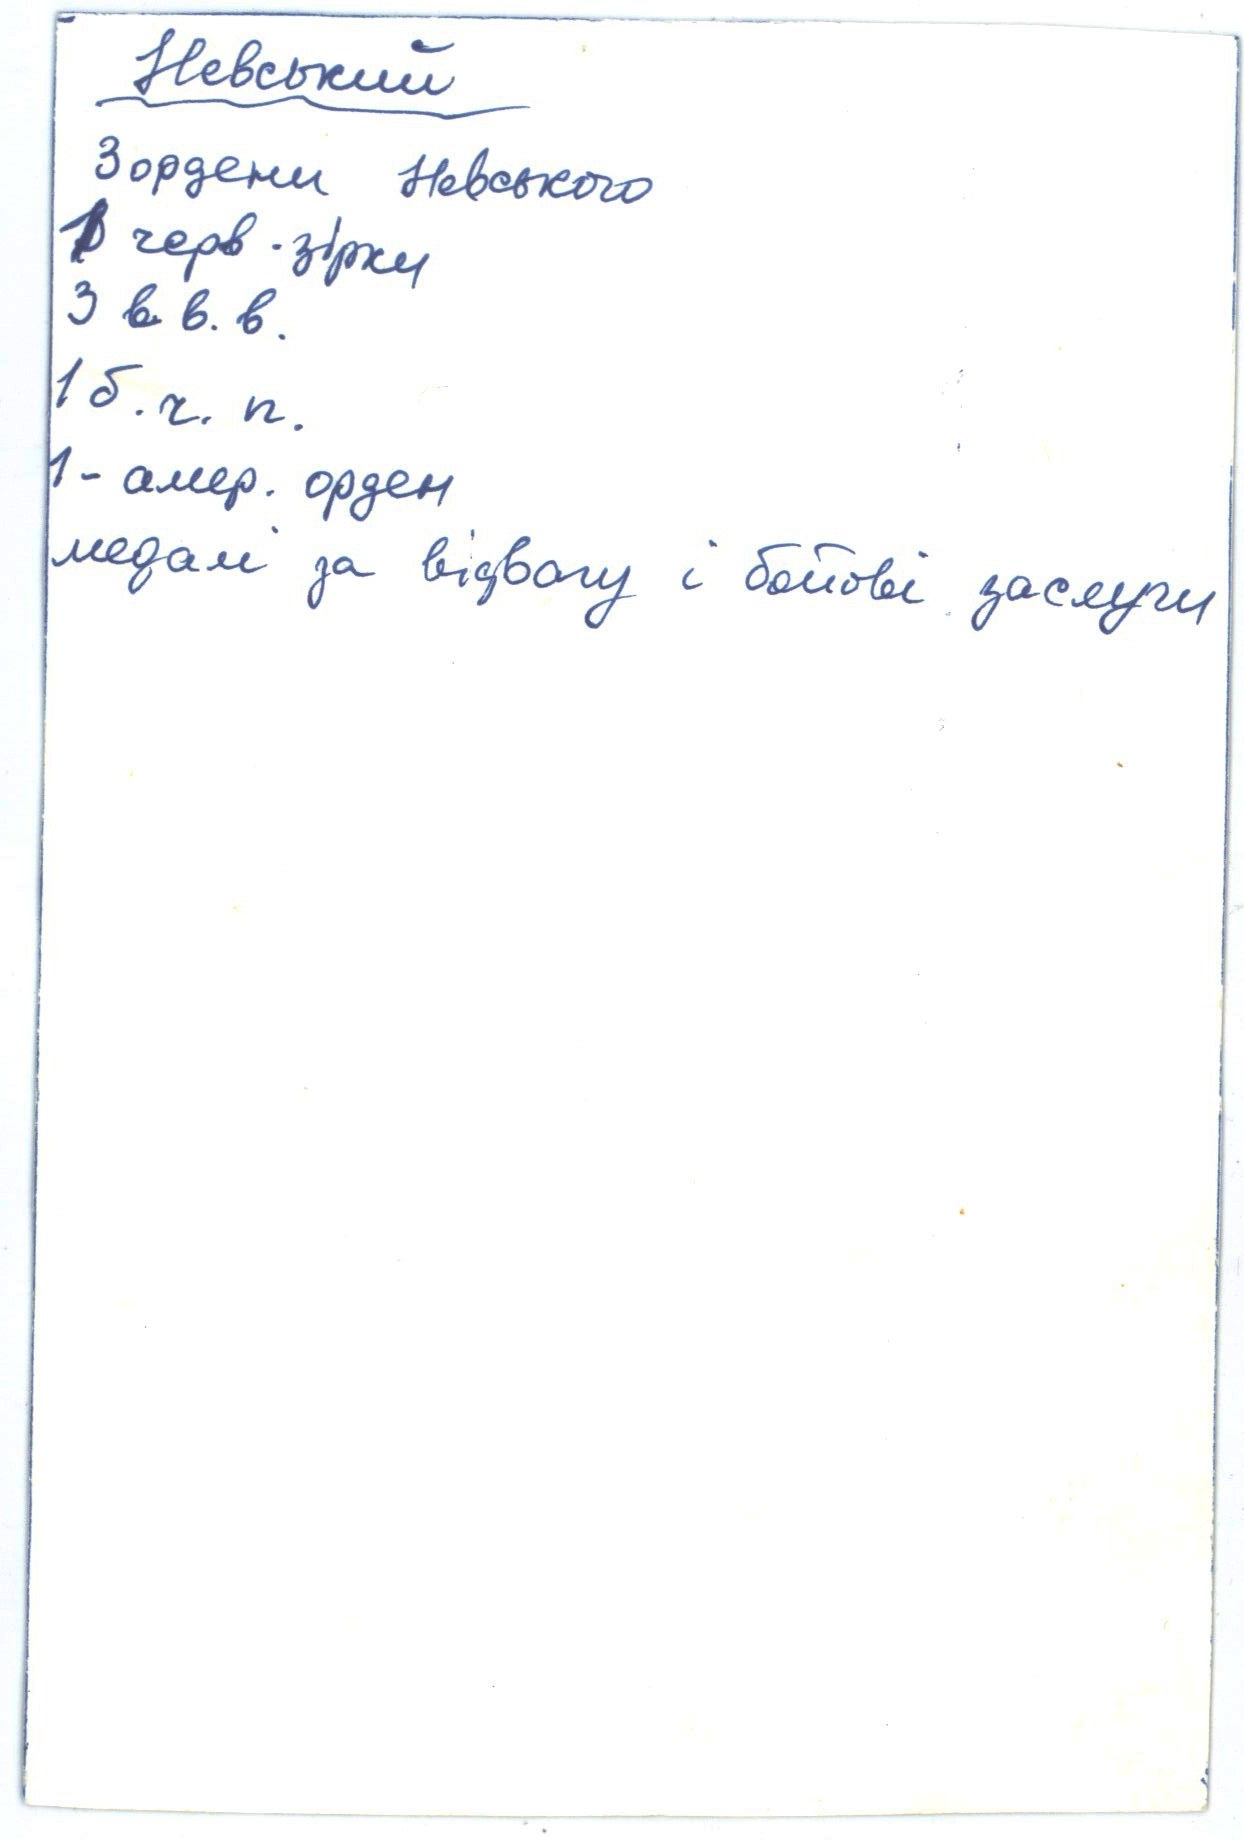 Невський
3 ордени Невського
1 черв. зірки
3 в. в. в.
1 б. ч. п.
1 - амер. орден
медалі за відвагу і бойові заслуги